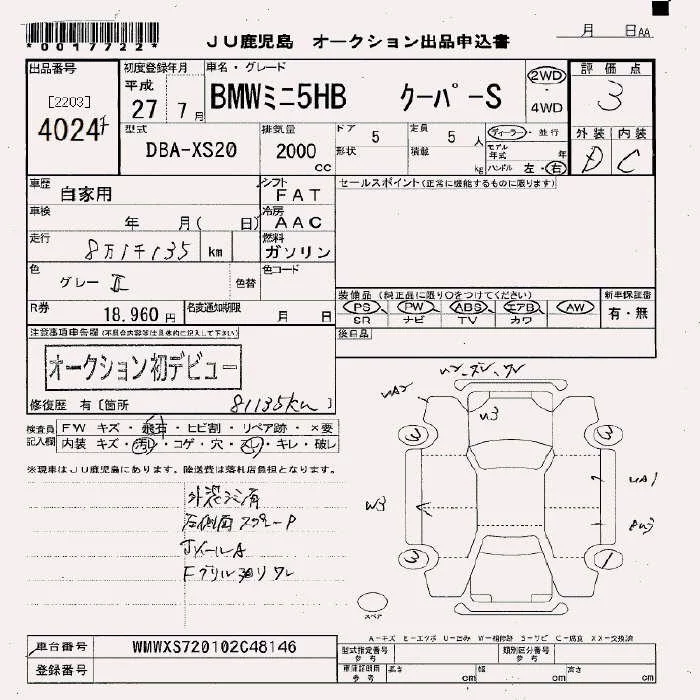 *0017722*
JU鹿児島 オークション出品申込書
月 日AA
出品番号
[2203]
4024
初度登録年月
平成
27年 7月
車名・グレード
BMWミニ5HB クーパーS
2WD
4WD
評価点
3
外装 内装
D C
型式
DBA-XS20
排気量
2000
cc
ドア 5
形状
定員 5 人
積載 kg
ディーラー・並行
モデル年式 年
ハンドル 左・右
車歴
自家用
シフト
FAT
セールスポイント(正常に機能するものに限ります)
車検
年 月( 日)
冷房
AAC
走行
8万1千135 km
燃料
ガソリン
色
グレーⅡ
色替
色コード
R券
18,960 円
名変通知期限
月 日
装備品(純正品に限り○をつけてください)
PS PW ABS エアB AW
SR ナビ TV カワ
新車保証書
有・無
後日品
注意事項申告欄(不具合内容等は具体的に記入して下さい)
オークション初デビュー
修復歴 有[箇所 81135km ]
検査員記入欄
FW キズ・飛石・ヒビ割・リペア跡・×要
内装 キズ・汚れ・コゲ・穴・スレ・キレ・破レ
※現車はJU鹿児島にあります。陸送費は落札店負担となります。
ホイールA
UA2
U3
3
3
W3
UA1
3
1
スペア
A-キズ E-エクボ U-凹み W-補修跡 S-サビ C-腐食 XX-交換済
車台番号
WMWXS720102C48146
登録番号
型式指定番号
参考
類別区分番号
参考
車庫証明用
参考
長さ cm
幅 cm
高さ cm